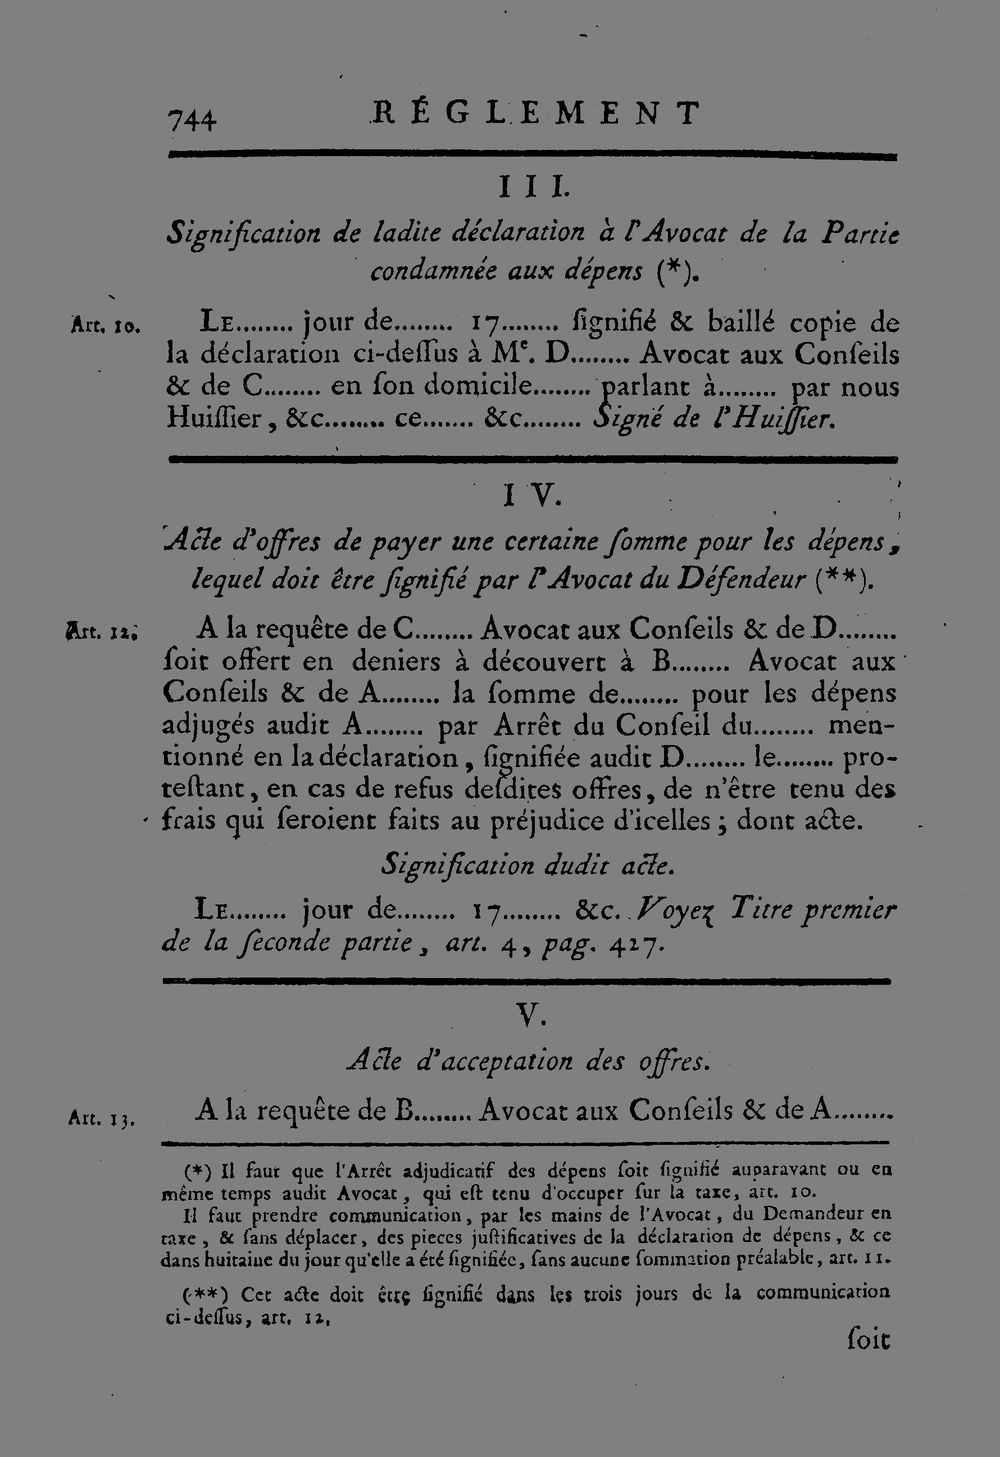 744 RÉGLEMENT
III.
Signification de ladite déclaration à l'Avocat de la Partie
condamnée aux dépens (*).
Art. 10. LE........ jour de........ 17........ ſignifié & baillé copie de
la déclaration ci-deſſus à Me. D........ Avocat aux Conſeils
& de C........ en ſon domicile........ parlant à........ par nous
Huiſſier, &c........ ce....... &c........ Signé de l'Huiſſier.
IV.
Acte d'offres de payer une certaine ſomme pour les dépens,
lequel doit être ſignifié par l'Avocat du Défendeur (**).
Art. 12. A la requête de C........ Avocat aux Conſeils & de D........
ſoit offert en deniers à découvert à B........ Avocat aux
Conſeils & de A........ la ſomme de........ pour les dépens
adjugés audit A........ par Arrêt du Conſeil du........ men-
tionné en la déclaration, ſignifiée audit D........ le........ pro-
teſtant, en cas de refus deſdites offres, de n'être tenu des
frais qui ſeroient faits au préjudice d'icelles; dont acte.
Signification dudit acte.
LE........ jour de........ 17........ &c. Voyez Titre premier
de la ſeconde partie, art. 4, pag. 427.
V.
Acte d'acceptation des offres.
Art. 13. A la requête de B........ Avocat aux Conſeils & de A........
(*) Il faut que l'Arrêt adjudicatif des dépens ſoit ſignifié auparavant ou en
même temps audit Avocat, qui eſt tenu d'occuper ſur la taxe, art. 10.
Il faut prendre communication, par les mains de l'Avocat, du Demandeur en
taxe, & ſans déplacer, des pieces juſtificatives de la déclaration de dépens, & ce
dans huitaine du jour qu'elle a été ſignifiée, ſans aucune ſommation préalable, art. 11.
(**) Cet acte doit être ſignifié dans les trois jours de la communication
ci-deſſus, art. 12.
ſoit